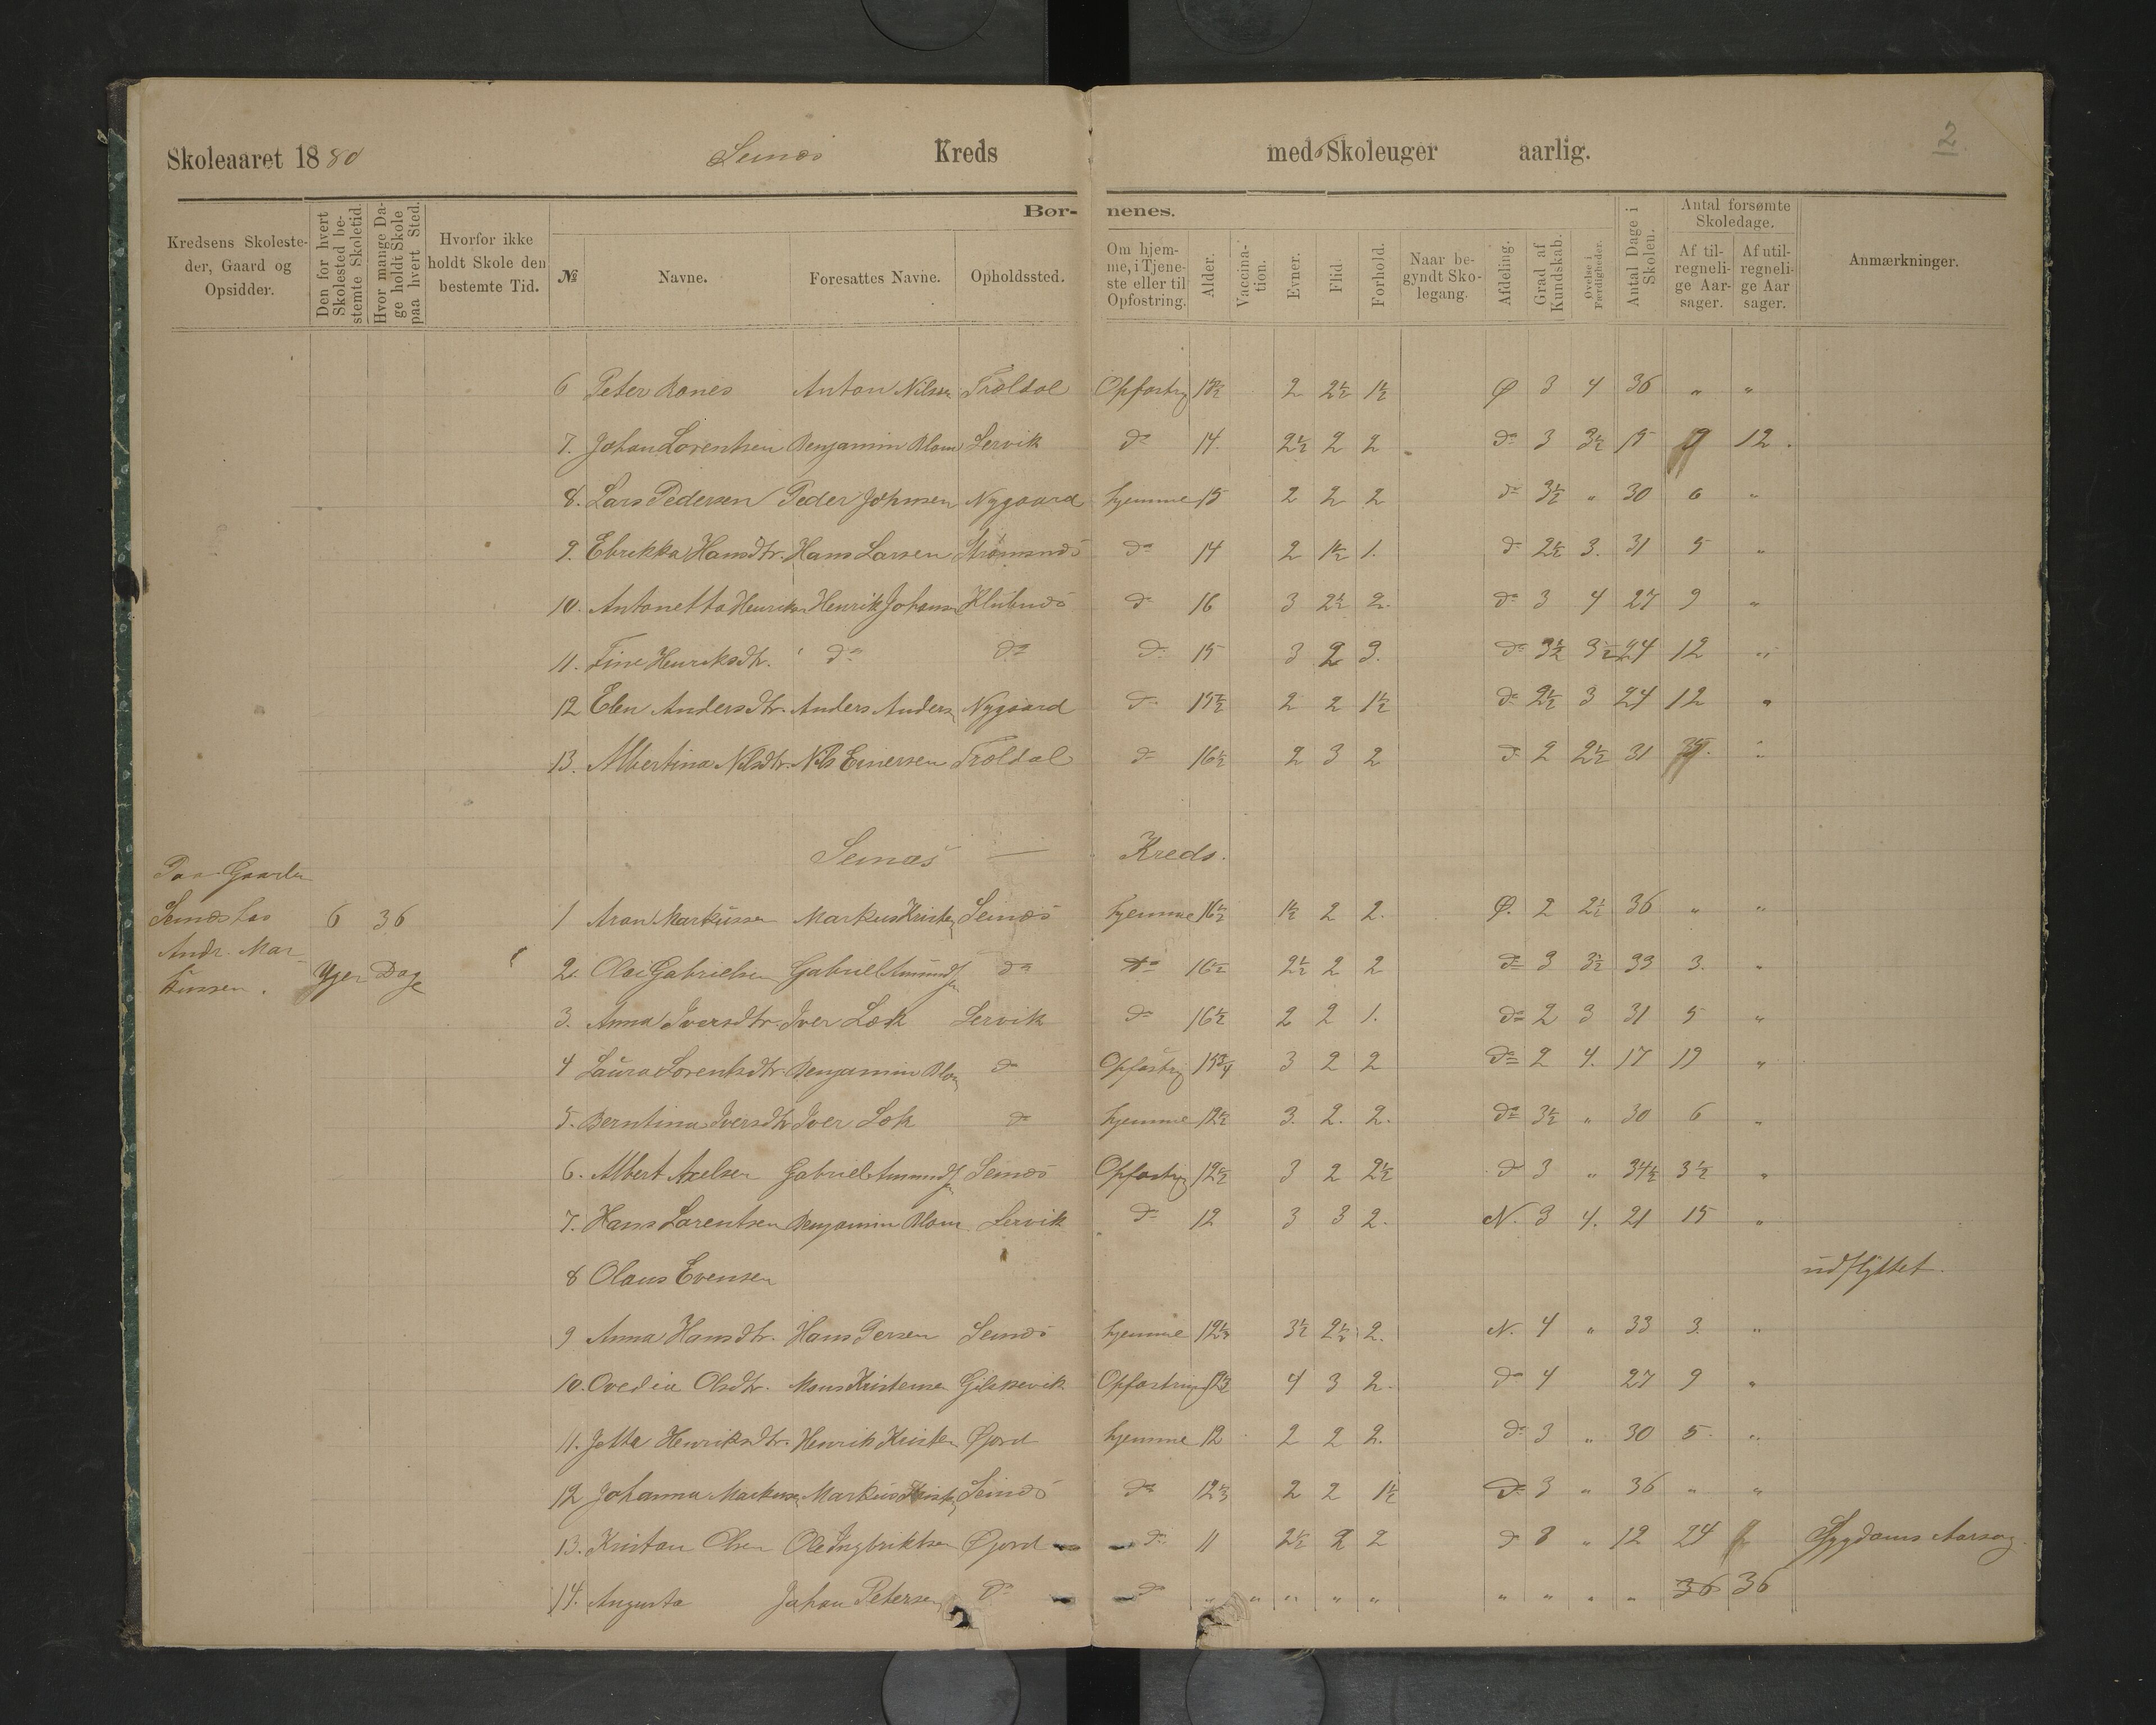 2
Skoleaaret 1880 Semæs Kreds med 6 Skoleuger aarlig.
Børnenes.
Kredsens Skolesteder, Gaard og Opsidder. Den for hvert Skolested bestemte Skoletid. Hvor mange Dage holdt Skole paa hvert Sted. Hvorfor ikke holdt Skole den bestemte Tid. № Navne. Foresattes Navne. Opholdssted. Om hjemme, i Tjeneste eller til Opfostring. Alder. Vaccination. Evner. Flid. Forhold. Naar begyndt Skolegang. Afdeling. Grad af Kundskab. Øvelse i Færdigheder. Antal Dage i Skolen. Antal forsømte Skoledage. Af tilregnelige Aarsager. Af utilregnelige Aarsager. Anmærkninger.
6 Peter Rones Anton Nilsen Troldal Opfostrg 2 2½ 1½ Ø 3 4 36 " "
7. Johan Lorentsen Benjamin Blom Lervik do 14. 2½ 2 2 do 3 3½ 15 9 12.
8. Lars Pedersen Peder Johnsen Nygaard hjemme 15 2 2 2 do 3½ " 30 6 "
9. Ebrikka Hansdtr. Hans Larsen Strømnæs do 14 2 1½ 1. do 2½ 3. 31 5 "
10. Antonetta Henriks Henrik Johans Klubnæs do 16 3 2½ 2. do 3 4 27 9 "
11. Fine Henriksdtr. do do do 15 3 2 3. do 3½ 3½ 24 12 "
12 Elen Andersdtr. Anders Anders Nygaard do 15½ 2 2 1½ do 2½ 3 24 12 "
13. Albertina Nilsdtr. Nils Einersen Troldal do 16½ 2 3 2 do 2 2½ 31 "
Semæs — Kreds.
Paa Gaarden
Semæs hos 6 36 1 Aron Markussen Markus Kristen Semæs hjemme 16½ 1½ 2 2. Ø. 2 2½ 36 " "
Andr. Mar-
kussen. Uger Dage 2. Oloi Gabrielsen Gabriel Amundsen do do 16½ 2½ 2 2 do 3 3½ 33 3. "
3. Anna Iversdtr. Iver Lok Lervik do 16½ 2 2 1. do 2 3 31 5 "
4 Laura Lorentsdtr. Benjamin Blom do Opfostrg 15¾ 3 2 2 do 2 4. 17 19 "
5. Berntina Iversdtr Iver Lok do hjemme 12½ 3. 2. 2. do 3½ " 30 6 "
6. Albert Axelsen Gabriel Amundsen Semæs Opfostrg 12½ 3 2 2½ do 3 " 34½ 3½ "
7. Hans Lorentsen Benjamin Blom Lervik do 12 3 3 2. N. 3 4. 21 15 "
8 Olaus Evensen udflyttet.
9 Anna Hansdtr. Hans Persen Semæs hjemme 3½ 2½ 2. N. 4 " 33 3. "
10. Ovedia Olsdtr. Mons Kristensen Opfostring 4 3 2. do 4 27 9 "
11. Jetta Henriksdtr. Henrik Kristen Øjord hjemme 12 2 2 2. do 3 " 30 5. "
12 Johanna Markusen Markus Kristen Semæs do 2 2 1½ do 3 " 36 " "
13. Kristan Olsen Ole Ingbriktsen Øjord do 11 2½ 2 2 do 3 " 12 24 Sygdoms Aarsag.
14. Augusta Johan Petersen do do " " " " " " " " " 36 36